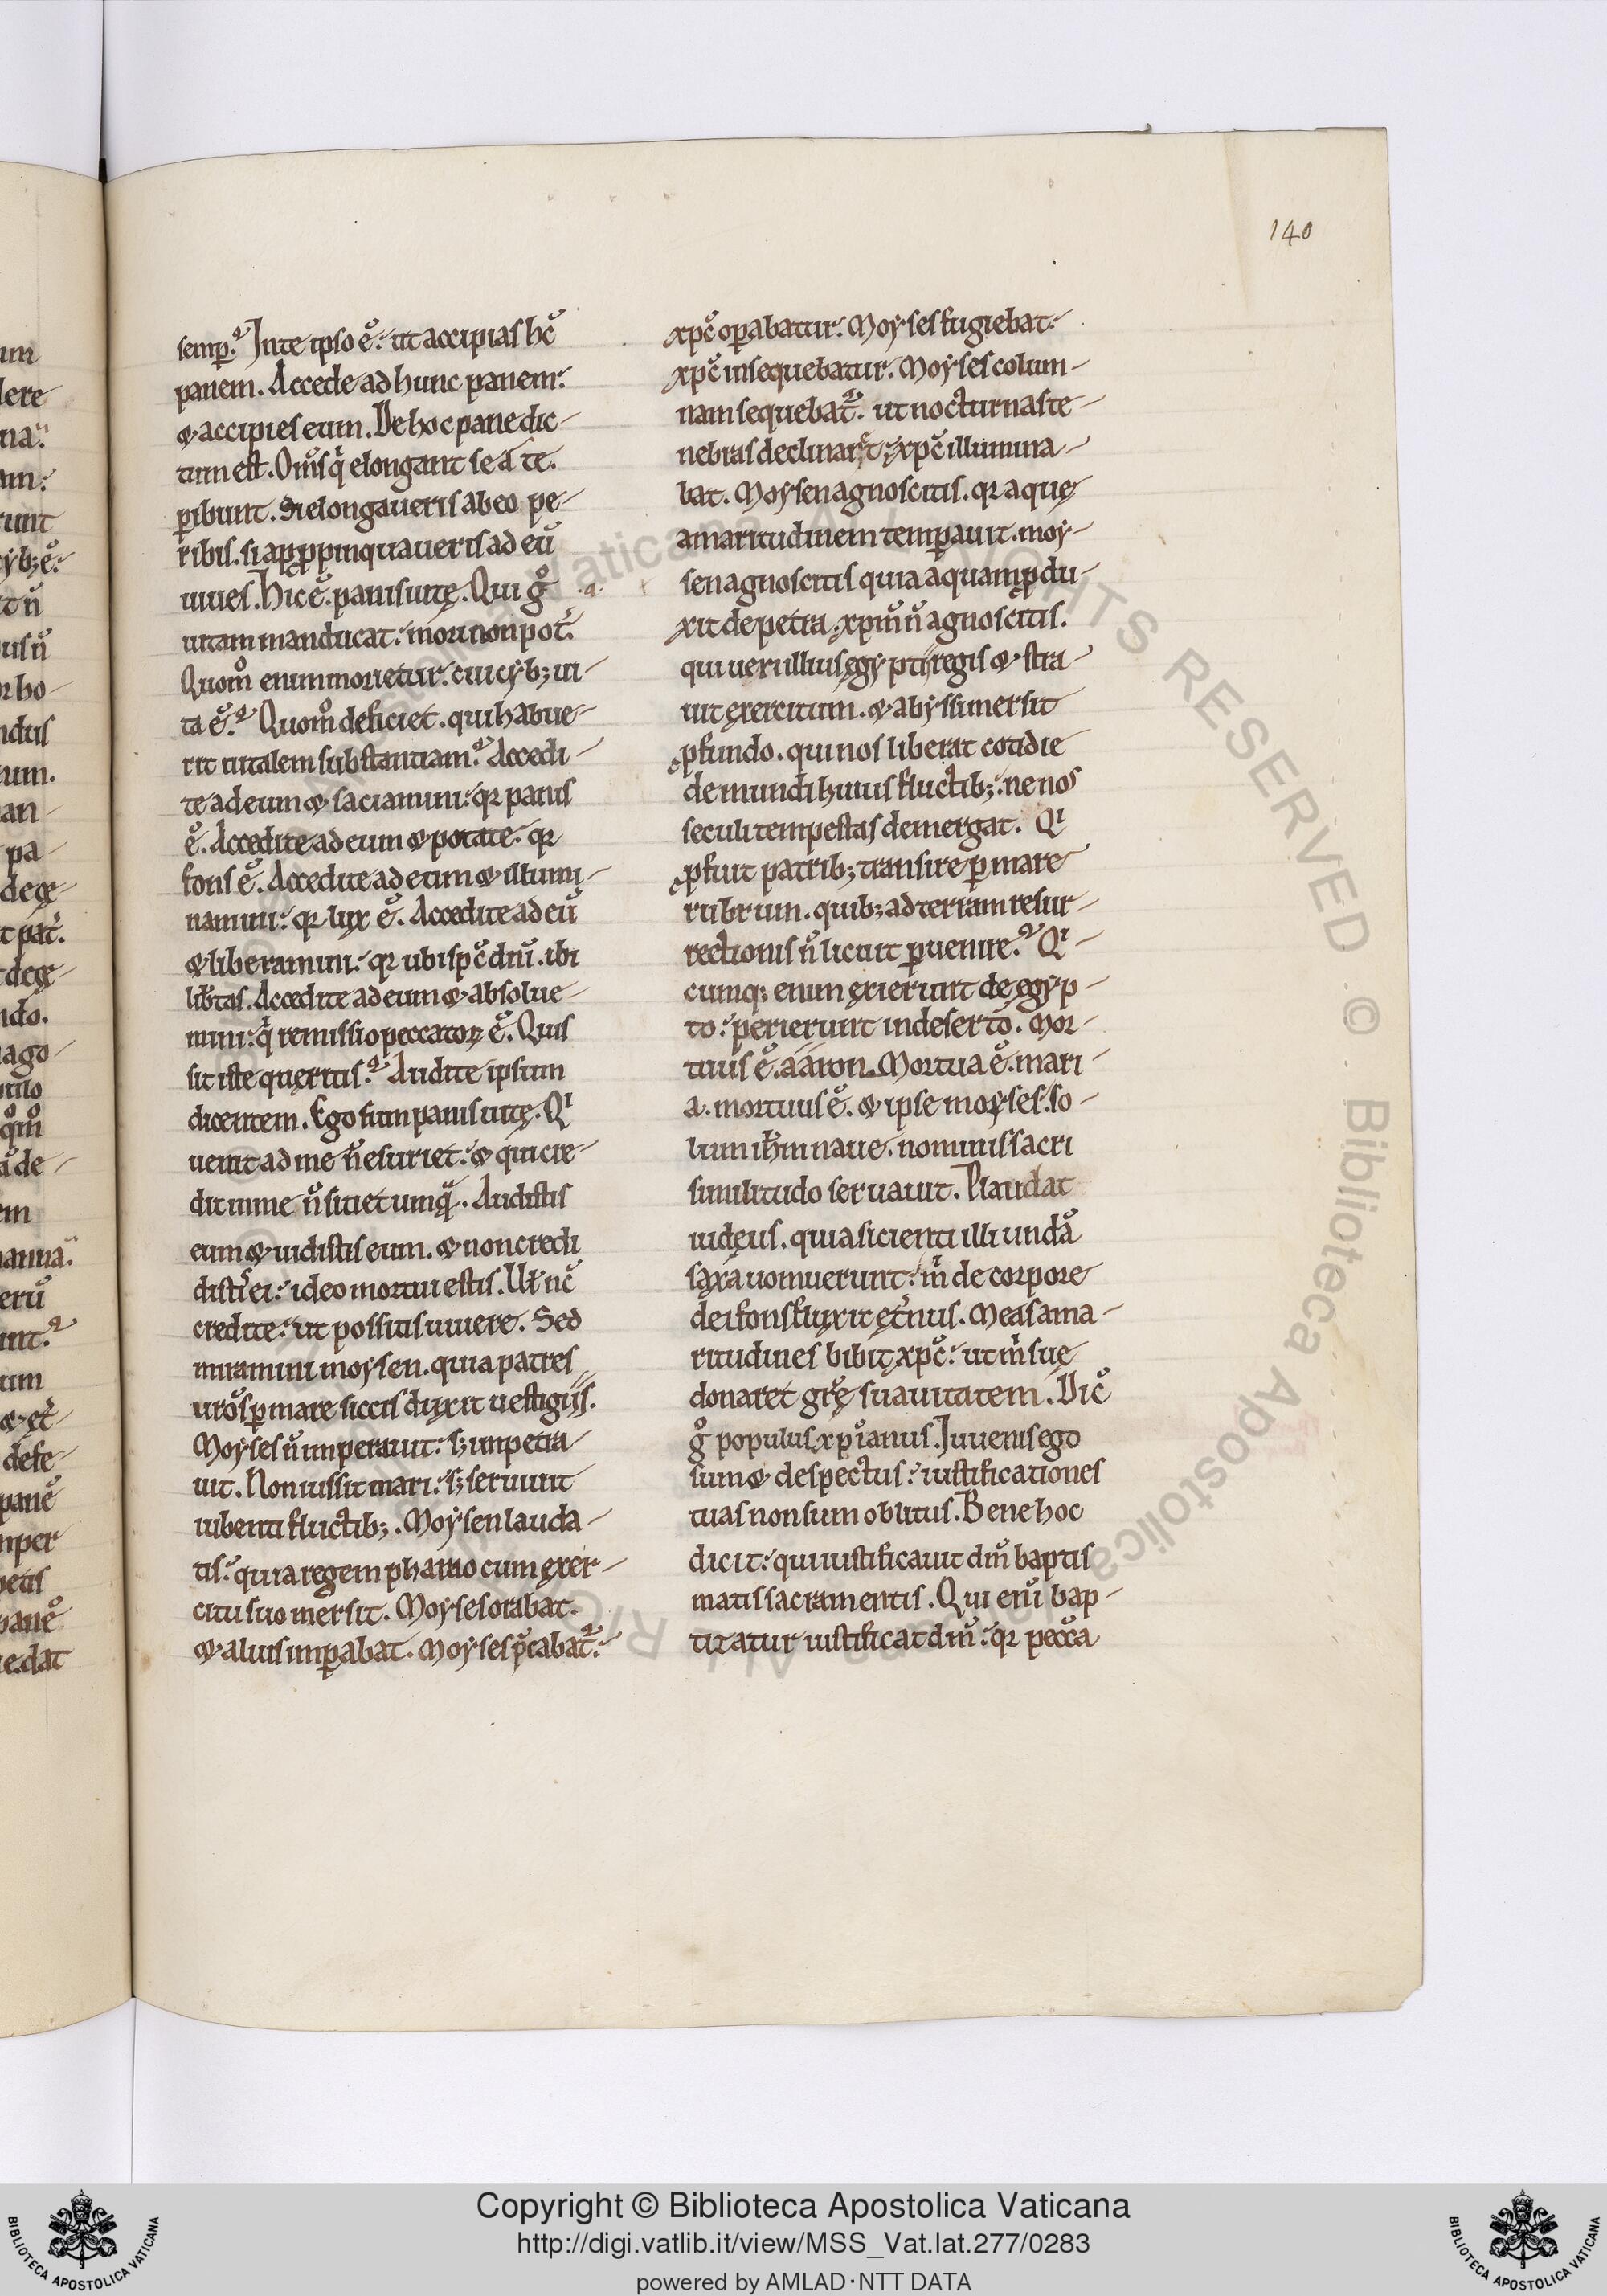 140
semꝑ. In te ipso ē. ut accipias hc̄
panem. Accede ad hunc panem.
& accipies eum. De hoc pane dic-
tum est. Om̄s q̇ elongant se a te.
ꝑibunt. Si elongaueris ab eo pe-
ribis. si apꝓpinquaueris ad eū
uiues. Hic ē. panis uitę. Qui gͦ
uitam manducat. mori non pot̄.
Quom̊ enim morietur. cui cyb; ui-
ta ē. Quom̊ deficiet. qui habue-
rit uitalem substantiam. Accedi-
te ad eum & saciamini. qꝛ panis
ē. Accedite ad eum & potate. qꝛ
fons ē. Accedite ad eum & illumi-
namini. qꝛ lux ē. Accedite ad eū
& liberamini. qꝛ ubi spc̄ dnī. ibi
lib̄tas. Accedite ad eum & absolue-
mini. q̇ remissio peccatoꝝ ē. Quis
sit iste queritis. Audite ipsum
dicentem. Ego sum panis uitę. Qⁱ
uenit ad me n̄ esuriet. & qui cre-
dit in me n̄ sitiet umq̄. Audistis
eum & uidistis eum. & non credi
disti ei. ideo mortui estis. Uł nc̄
credite. ut possitis uiuere. Sed
miramini moysen. quia patres
uros̄ ꝑ mare siccis duxit uestigiis.
Moyses n̄ imperauit. s; impetra-
uit. Non iussit mari. s; seruiuit
iubenti fluctib;. Moysen lauda-
tis. quia regem pharao cum exer-
citu suo mersit. Moyses orabat.
& alius imꝑabat. Moyses p̄cabat̄.
xpc̄ oꝑabatur. Moyses fugiebat.
xpc̄ insequebatur. Moyses colum-
nam sequebat̄. ut nocturnas te-
nebras declinaret. xpc̄ illumina-
bat. Moysen agnoscitis. qꝛ aquę
amaritudinem temꝑauit. moy-
sen agnoscitis quia aquam ꝓdu-
xit de petra. xpm̄ n̄ agnoscitis.
qui uer illius egyptii regis & stra-
uit exercitum. & abyssi mersit
ꝓfundo. qui nos liberat cotidie
de mundi huius fluctib;. ne nos
seculi tempestas demergat. Qⁱ
ꝓfuit patrib; transire ꝑ mare
rubrum. quib; ad terram resur-
rectionis n̄ licuit ꝑuenire. Qⁱ-
cumq; enim exierunt de egyp-
to. perierunt in deserto. Mor-
tuus ē. aaron. Mortua ē. mari-
a. mortuus ē. & ipse moyses. so-
lum ih̄m naue. nominis sacri
similitudo seruauit. Plaudat
iudeus. quia sicienti illi undā
saxa uomuerunt. m̄ de corpore
dei fons fluxit et̄nus. Meas ama-
ritudines bibit xpc̄. ut m̄ suę
donaret gr̄ę suauitatem. Dic̄
gͦ populus xp̄ianus. Iuuenis ego
sum & despectus. iustificationes
tuas non sum oblitus. Bene hoc
dicit. qui iustificauit dm̄ baptis
matis sacramentis. Qui enī bap-
tizatur iustificat dm̄. qꝛ pecc̄a
Copyright © Biblioteca Apostolica Vaticana
http://digi.vatlib.it/view/MSS_Vat.lat.277/0283
powered by AMLAD·NTT DATA